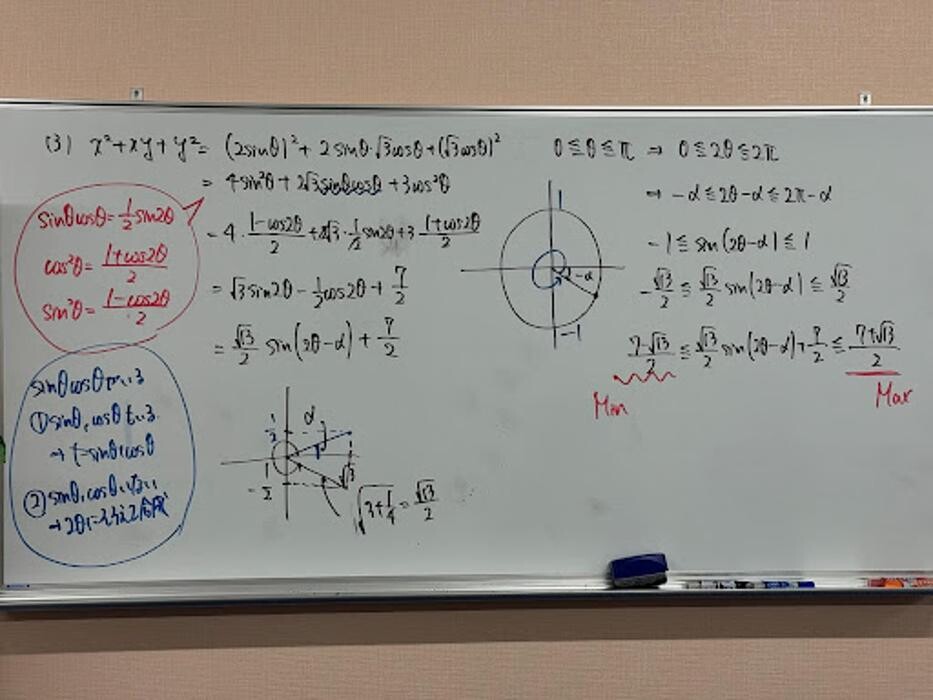 (3) x²+xy+y²= (2sinθ)²+ 2sinθ·√3cosθ+(√3cosθ)²
= 4sin²θ+2√3sinθcosθ+3cos²θ
= 4·(1-cos2θ)/2+2√3·1/2 sin2θ+3·(1+cos2θ)/2
= √3sin2θ-1/2cos2θ+7/2
= √13/2 sin(2θ-α)+7/2
sinθcosθ=1/2sin2θ
cos²θ=(1+cos2θ)/2
sin²θ=(1-cos2θ)/2
sinθcosθ
①sinθ,cosθ
→t=sinθ+cosθ
②sinθ,cosθ
→2θに
1/2
α
-1/2
√3
√(3+1/4)=√13/2
0≦θ≦π → 0≦2θ≦2π
→ -α≦2θ-α≦2π-α
1
-α
-1
-1≦sin(2θ-α)≦1
-√13/2≦√13/2 sin(2θ-α)≦√13/2
(7-√13)/2≦√13/2 sin(2θ-α)+7/2≦(7+√13)/2
Min
Max